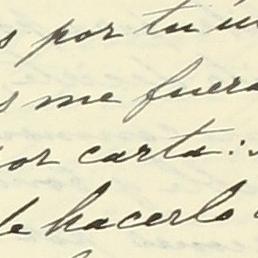 s por tu
me fuera
por carta:
de hacerlo